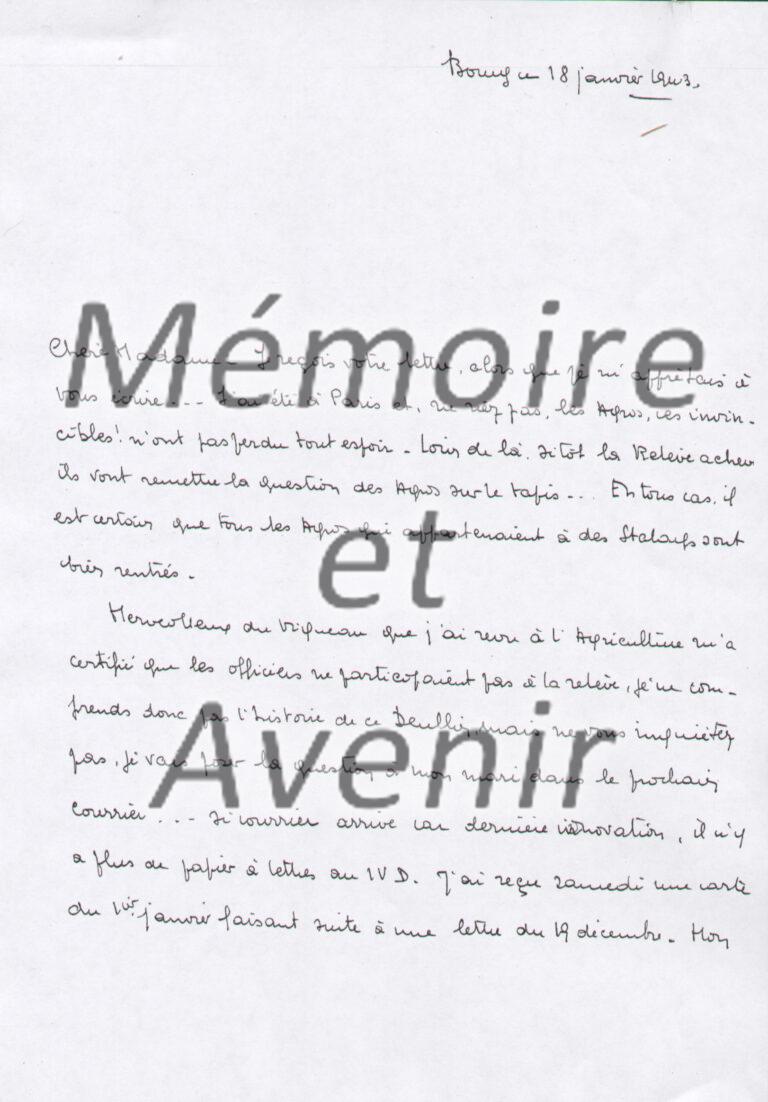 ce 18 janvier 1943.
Mémoire
Chère Madame - Je reçois votre lettre, alors que je m'apprêtais à
vous écrire... J'ai été à Paris et, ne riez pas, les Agros, ces invin-
cibles! n'ont pas perdu tout espoir - Loin de là. Sitôt la Relève achevée
ils vont remettre la question des Agros sur le tapis... En tous cas, il
et
est certain que tous les Agros qui appartenaient à des Stalags sont
bien rentrés.
du Vigneau que j'ai revu à l'Agriculture m'a
certifié que les officiers ne participaient pas à la relève, je ne com-
Avenir
prends donc pas l'histoire de ce mais ne vous inquiétez
pas, je vais poser la question à mon mari dans le prochain
courrier... si courrier arrive car dernière innovation, il n'y
a plus de papier à lettres au IV D. J'ai reçu samedi une carte
du 1er janvier faisant suite à une lettre du 19 décembre - Mon